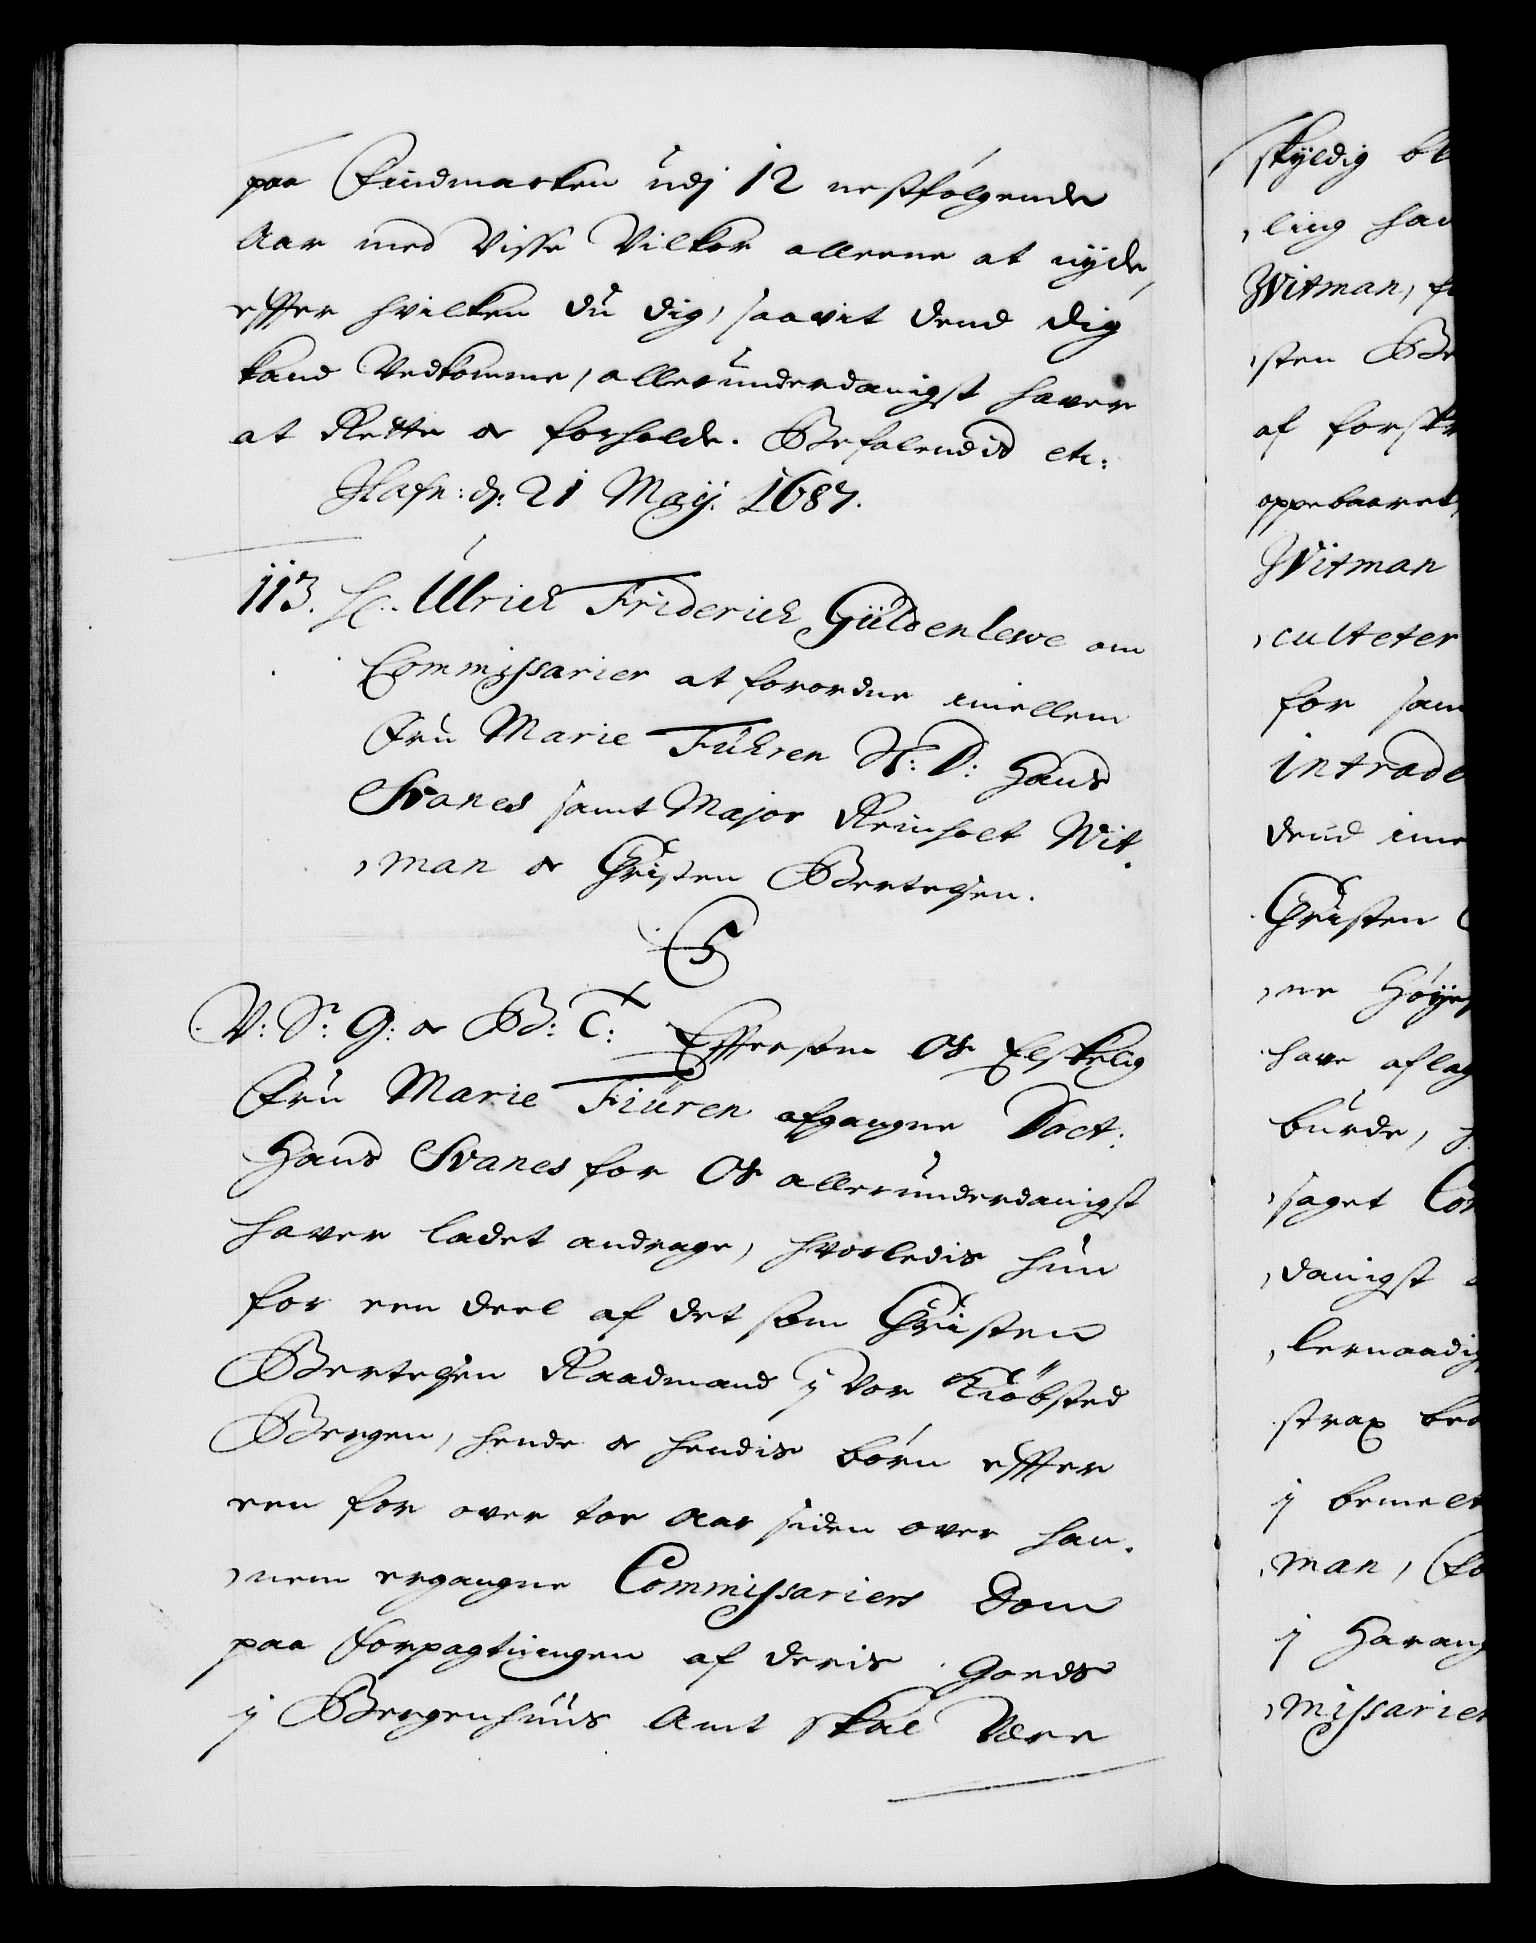 paa Findmarken udj 12 nestfølgende
Aar med Visse Vilkor alleene at nyde,
effter hvilken du dig, saavit dend dig
kand Vedkomme, allerunderdanigst haver
at Rette og forholde. Befalendis etc:
Hafn: d: 21 Maij. 1687.
113. H: Ulrich Friderich Güldenlewe om
Commissarier at forordne imellem
Fru Marie Führen S: D: Hans
Svanes samt Major Reinholt Wit-
,man og Christen Bertelsen.
C5
V: Sr: G: og B: T: Effter som Os Elskelig
Fru Marie Fiüren afgangne Doct:
Hans Svanes for Os allerunderdanigst
haver ladet andrage, hvorledis hun
for een deel af det som Christen
Bertelsen Raadmand j Vor Kiöbsted
Bergen, hende og hendis børn effter
een for over toe Aar siden over han-
,nem ergangne Commissariers Dom
paa Forpagtningen af deris Gords
j Bergenhuus Amt skal Vere
skyldig bl
,ling han
Witman, f
,sten Be
af forskr
oppebaaret,
Witman
,culteter
for sam
intrade
dend ime
Christen
,ne Høye
have aflag
burde,
,saget Com
,danigst
,lernaadig
strax be
j bemelt
,man, fo
j Harang
,missarier